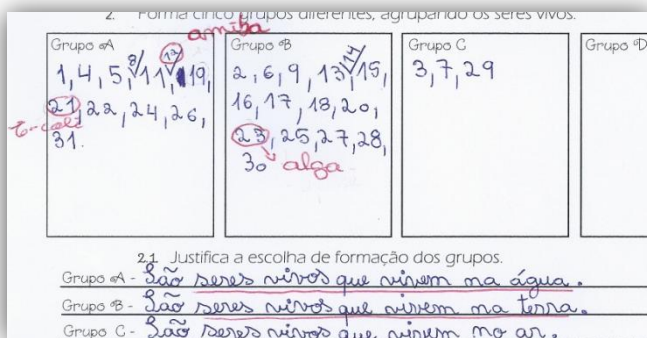 2. Forma cinco grupos diferentes, agrupando os seres vivos.
amiba
Grupo A
8 12
1, 4, 5, 11, 19,
21, 22, 24, 26,
E-coli
31.
Grupo B
14
2, 6, 9, 13, 15,
16, 17, 18, 20,
23, 25, 27, 28,
30 alga
Grupo C
3, 7, 29
Grupo D
2.1 Justifica a escolha de formação dos grupos.
Grupo A - São seres vivos que vivem na água.
Grupo B - São seres vivos que vivem na terra.
Grupo C - São seres vivos que vivem no ar.